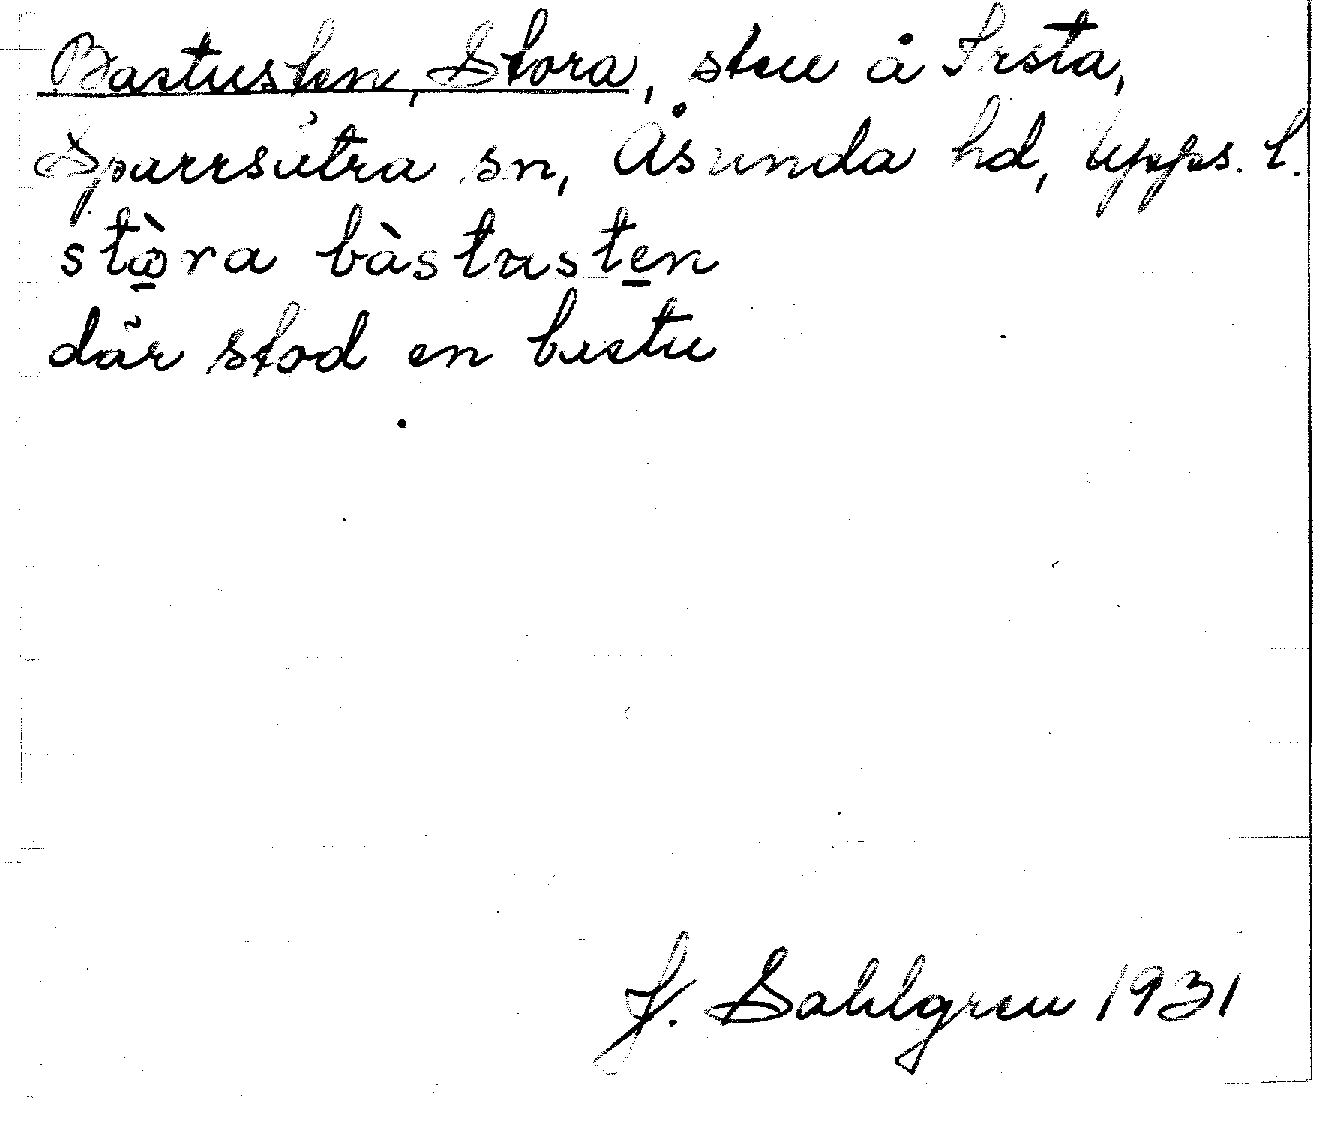 Bastusten, Stora, sten å Frsta,
Sparrsätra sn, Åsunda hd, Upps. l.
stò̤ra bàstuste̠n
där stod en bastu
J. Sahlgren 1931